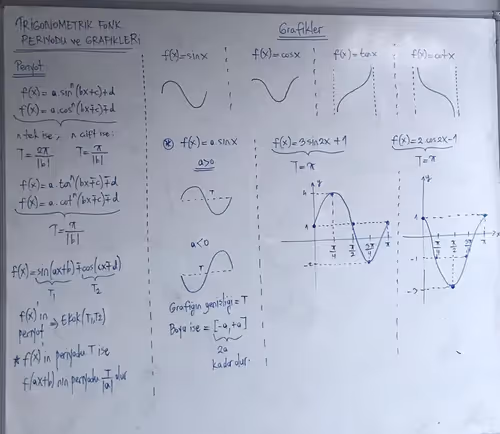 TRİGONOMETRİK FONK.
PERİYODU ve GRAFİKLERİ
Periyot
f(x) = a.sinⁿ(bx+c)+d
f(x) = a.cosⁿ(bx+c)+d
n tek ise, n çift ise:
T = 2π/|b| T = π/|b|
f(x) = a.tanⁿ(bx∓c)∓d
f(x) = a.cotⁿ(bx∓c)∓d
T = π/|b|
f(x) = sin(ax+b) ∓ cos(cx+d)
T₁ T₂
f(x)'in periyot => Ekok(T₁,T₂)
* f(x)'in periyodu T ise
f(ax+b) nin periyodu T/|a| olur
Grafikler
f(x) = sinx
f(x) = cosx
f(x) = tanx
f(x) = cotx
* f(x) = a.sinx
a>0
T
a<0
Grafiğin genişliği = T
Boyu ise = [-a,+a]
2a
kadar olur.
f(x) = 3sin2x+1
T = π
y
4
1
π/4 π/2 3π/4 π
-2
f(x) = 2cos2x-1
T = π
y
1
π/4 π/2 3π/4 π
x
-1
-3